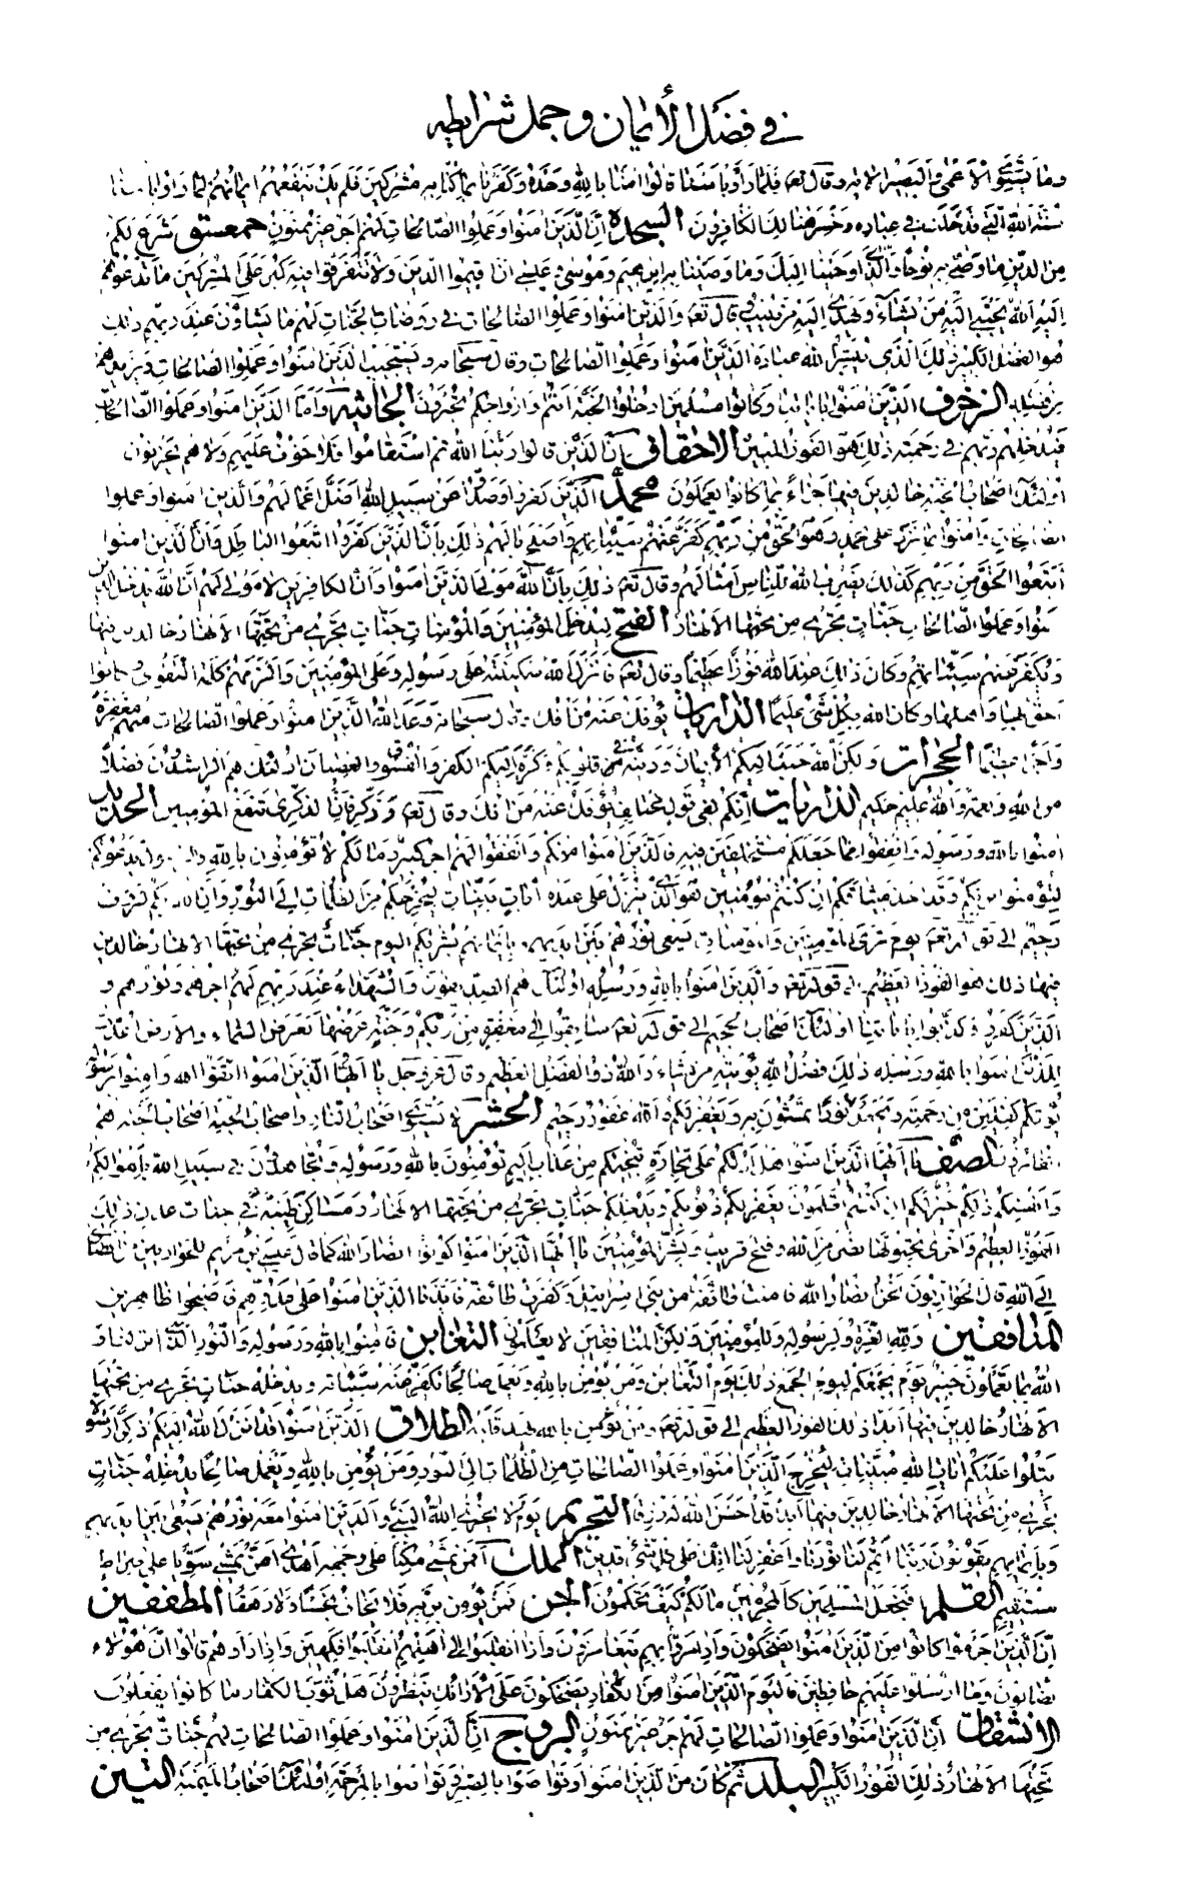 في فضل الإيمان وجمل شرايطه
وما يستوي الأعمى والبصير الآية وقال تعالى فلما رأوا بأسنا قالوا آمنا بالله وحده وكفرنا بما كنا به مشركين فلم يك ينفعهم إيمانهم لما رأوا بأسنا
سنة الله التي قد خلت في عباده وخسر هنالك الكافرون السجدة إن الذين آمنوا وعملوا الصالحات لهم أجر غير ممنون حمعسق شرع لكم
من الدين ما وصى به نوحا والذي أوحينا إليك وما وصينا به إبراهيم وموسى وعيسى أن أقيموا الدين ولا تتفرقوا فيه كبر على المشركين ما تدعوهم
إليه الله يجتبي إليه من يشاء ويهدي إليه من ينيب وقال تعالى والذين آمنوا وعملوا الصالحات في روضات الجنات لهم ما يشاؤن عند ربهم ذلك
هو الفضل الكبير ذلك الذي يبشر الله عباده الذين آمنوا وعملوا الصالحات وقال سبحانه ويستجيب الذين آمنوا وعملوا الصالحات ويزيدهم
من فضله الزخرف الذين آمنوا بآياتنا وكانوا مسلمين ادخلوا الجنة أنتم وأزواجكم تحبرون الجاثية وأما الذين آمنوا وعملوا الصالحات
فيدخلهم ربهم في رحمته ذلك هو الفوز المبين الاحقاف إن الذين قالوا ربنا الله ثم استقاموا فلا خوف عليهم ولا هم يحزنون
أولئك أصحاب الجنة خالدين فيها جزاء بما كانوا يعملون محمد الذين كفروا وصدوا عن سبيل الله أضل أعمالهم والذين آمنوا وعملوا
الصالحات وآمنوا بما نزل على محمد وهو الحق من ربهم كفر عنهم سيئاتهم وأصلح بالهم ذلك بأن الذين كفروا اتبعوا الباطل وأن الذين آمنوا
اتبعوا الحق من ربهم كذلك يضرب الله للناس أمثالهم وقال تعالى ذلك بأن الله مولى الذين آمنوا وأن الكافرين لا مولى لهم إن الله يدخل الذين
آمنوا وعملوا الصالحات جنات تجري من تحتها الأنهار الفتح ليدخل المؤمنين والمؤمنات جنات تجري من تحتها الأنهار خالدين فيها
ويكفر عنهم سيئاتهم وكان ذلك عند الله فوزا عظيما وقال تعالى فأنزل الله سكينته على رسوله وعلى المؤمنين وألزمهم كلمة التقوى وكانوا
أحق بها وأهلها وكان الله بكل شيء عليما الذاريات يؤفك عنه من أفك وقال سبحانه وعد الله الذين آمنوا وعملوا الصالحات منهم مغفرة
وأجرا عظيما الحجرات ولكن الله حبب إليكم الإيمان وزينه في قلوبكم وكره إليكم الكفر والفسوق والعصيان أولئك هم الراشدون فضلا
من الله ونعمة والله عليم حكيم الذاريات إنكم لفي قول مختلف يؤفك عنه من أفك وقال تعالى وذكر فإن الذكرى تنفع المؤمنين الحديد
آمنوا بالله ورسوله وأنفقوا مما جعلكم مستخلفين فيه فالذين آمنوا منكم وأنفقوا لهم أجر كبير وما لكم لا تؤمنون بالله والرسول يدعوكم
لتؤمنوا بربكم وقد أخذ ميثاقكم إن كنتم مؤمنين هو الذي ينزل على عبده آيات بينات ليخرجكم من الظلمات إلى النور وإن الله بكم لرؤف
رحيم إلى قوله تعالى يوم ترى المؤمنين والمؤمنات يسعى نورهم بين أيديهم وبأيمانهم بشريكم اليوم جنات تجري من تحتها الأنهار خالدين
فيها ذلك هو الفوز العظيم إلى قوله تعالى والذين آمنوا بالله ورسله أولئك هم الصديقون والشهداء عند ربهم لهم أجرهم ونورهم و
الذين كفروا وكذبوا بآياتنا أولئك أصحاب الجحيم إلى قوله تعالى سابقوا إلى مغفرة من ربكم وجنة عرضها كعرض السماء والأرض أعدت
للذين آمنوا بالله ورسله ذلك فضل الله يؤتيه من يشاء والله ذو الفضل العظيم وقال عز وجل يا أيها الذين آمنوا اتقوا الله وآمنوا برسوله
يؤتكم كفلين من رحمته ويجعل لكم نورا تمشون به ويغفر لكم والله غفور رحيم الحشر لا يستوي أصحاب النار وأصحاب الجنة أصحاب الجنة هم
الفائزون الصف يا أيها الذين آمنوا هل أدلكم على تجارة تنجيكم من عذاب أليم تؤمنون بالله ورسوله وتجاهدون في سبيل الله بأموالكم
وأنفسكم ذلكم خير لكم إن كنتم تعلمون يغفر لكم ذنوبكم ويدخلكم جنات تجري من تحتها الأنهار ومساكن طيبة في جنات عدن ذلك
الفوز العظيم وأخرى تحبونها نصر من الله وفتح قريب وبشر المؤمنين يا أيها الذين آمنوا كونوا أنصار الله كما قال عيسى بن مريم للحواريين من أنصاري
إلى الله قال الحواريون نحن أنصار الله فآمنت طائفة من بني إسرائيل وكفرت طائفة فأيدنا الذين آمنوا على عدوهم فأصبحوا ظاهرين
المنافقين ولله العزة ولرسوله وللمؤمنين ولكن المنافقين لا يعلمون التغابن فآمنوا بالله ورسوله والنور الذي أنزلنا و
الله بما تعملون خبير يوم يجمعكم ليوم الجمع ذلك يوم التغابن ومن يؤمن بالله ويعمل صالحا نكفر عنه سيئاته وندخله جنات تجري من تحتها
الأنهار خالدين فيها أبدا ذلك الفوز العظيم إلى قوله تعالى ومن يؤمن بالله يهد قلبه الطلاق الذين آمنوا قد أنزل الله إليكم ذكرا رسولا
يتلوا عليكم آيات الله مبينات ليخرج الذين آمنوا وعملوا الصالحات من الظلمات إلى النور ومن يؤمن بالله ويعمل صالحا يدخله جنات
تجري من تحتها الأنهار خالدين فيها أبدا قد أحسن الله له رزقا التحريم يوم لا يخزي الله النبي والذين آمنوا معه نورهم يسعى بين أيديهم
وبأيمانهم يقولون ربنا أتمم لنا نورنا واغفر لنا إنك على كل شيء قدير الملك أفمن يمشي مكبا على وجهه أهدى أمن يمشي سويا على صراط
مستقيم القلم أفنجعل المسلمين كالمجرمين ما لكم كيف تحكمون الجن فمن يؤمن بربه فلا يخاف بخسا ولا رهقا المطففين
إن الذين أجرموا كانوا من الذين آمنوا يضحكون وإذا مروا بهم يتغامزون وإذا انقلبوا إلى أهلهم انقلبوا فكهين وإذا رأوهم قالوا إن هؤلاء
لضالون وما أرسلوا عليهم حافظين فاليوم الذين آمنوا من الكفار يضحكون على الأرائك ينظرون هل ثوب الكفار ما كانوا يفعلون
الانشقاق إن الذين آمنوا وعملوا الصالحات لهم أجر غير ممنون البروج إن الذين آمنوا وعملوا الصالحات لهم جنات تجري من
تحتها الأنهار ذلك الفوز الكبير البلد ثم كان من الذين آمنوا وتواصوا بالصبر وتواصوا بالمرحمة أولئك أصحاب الميمنة التين